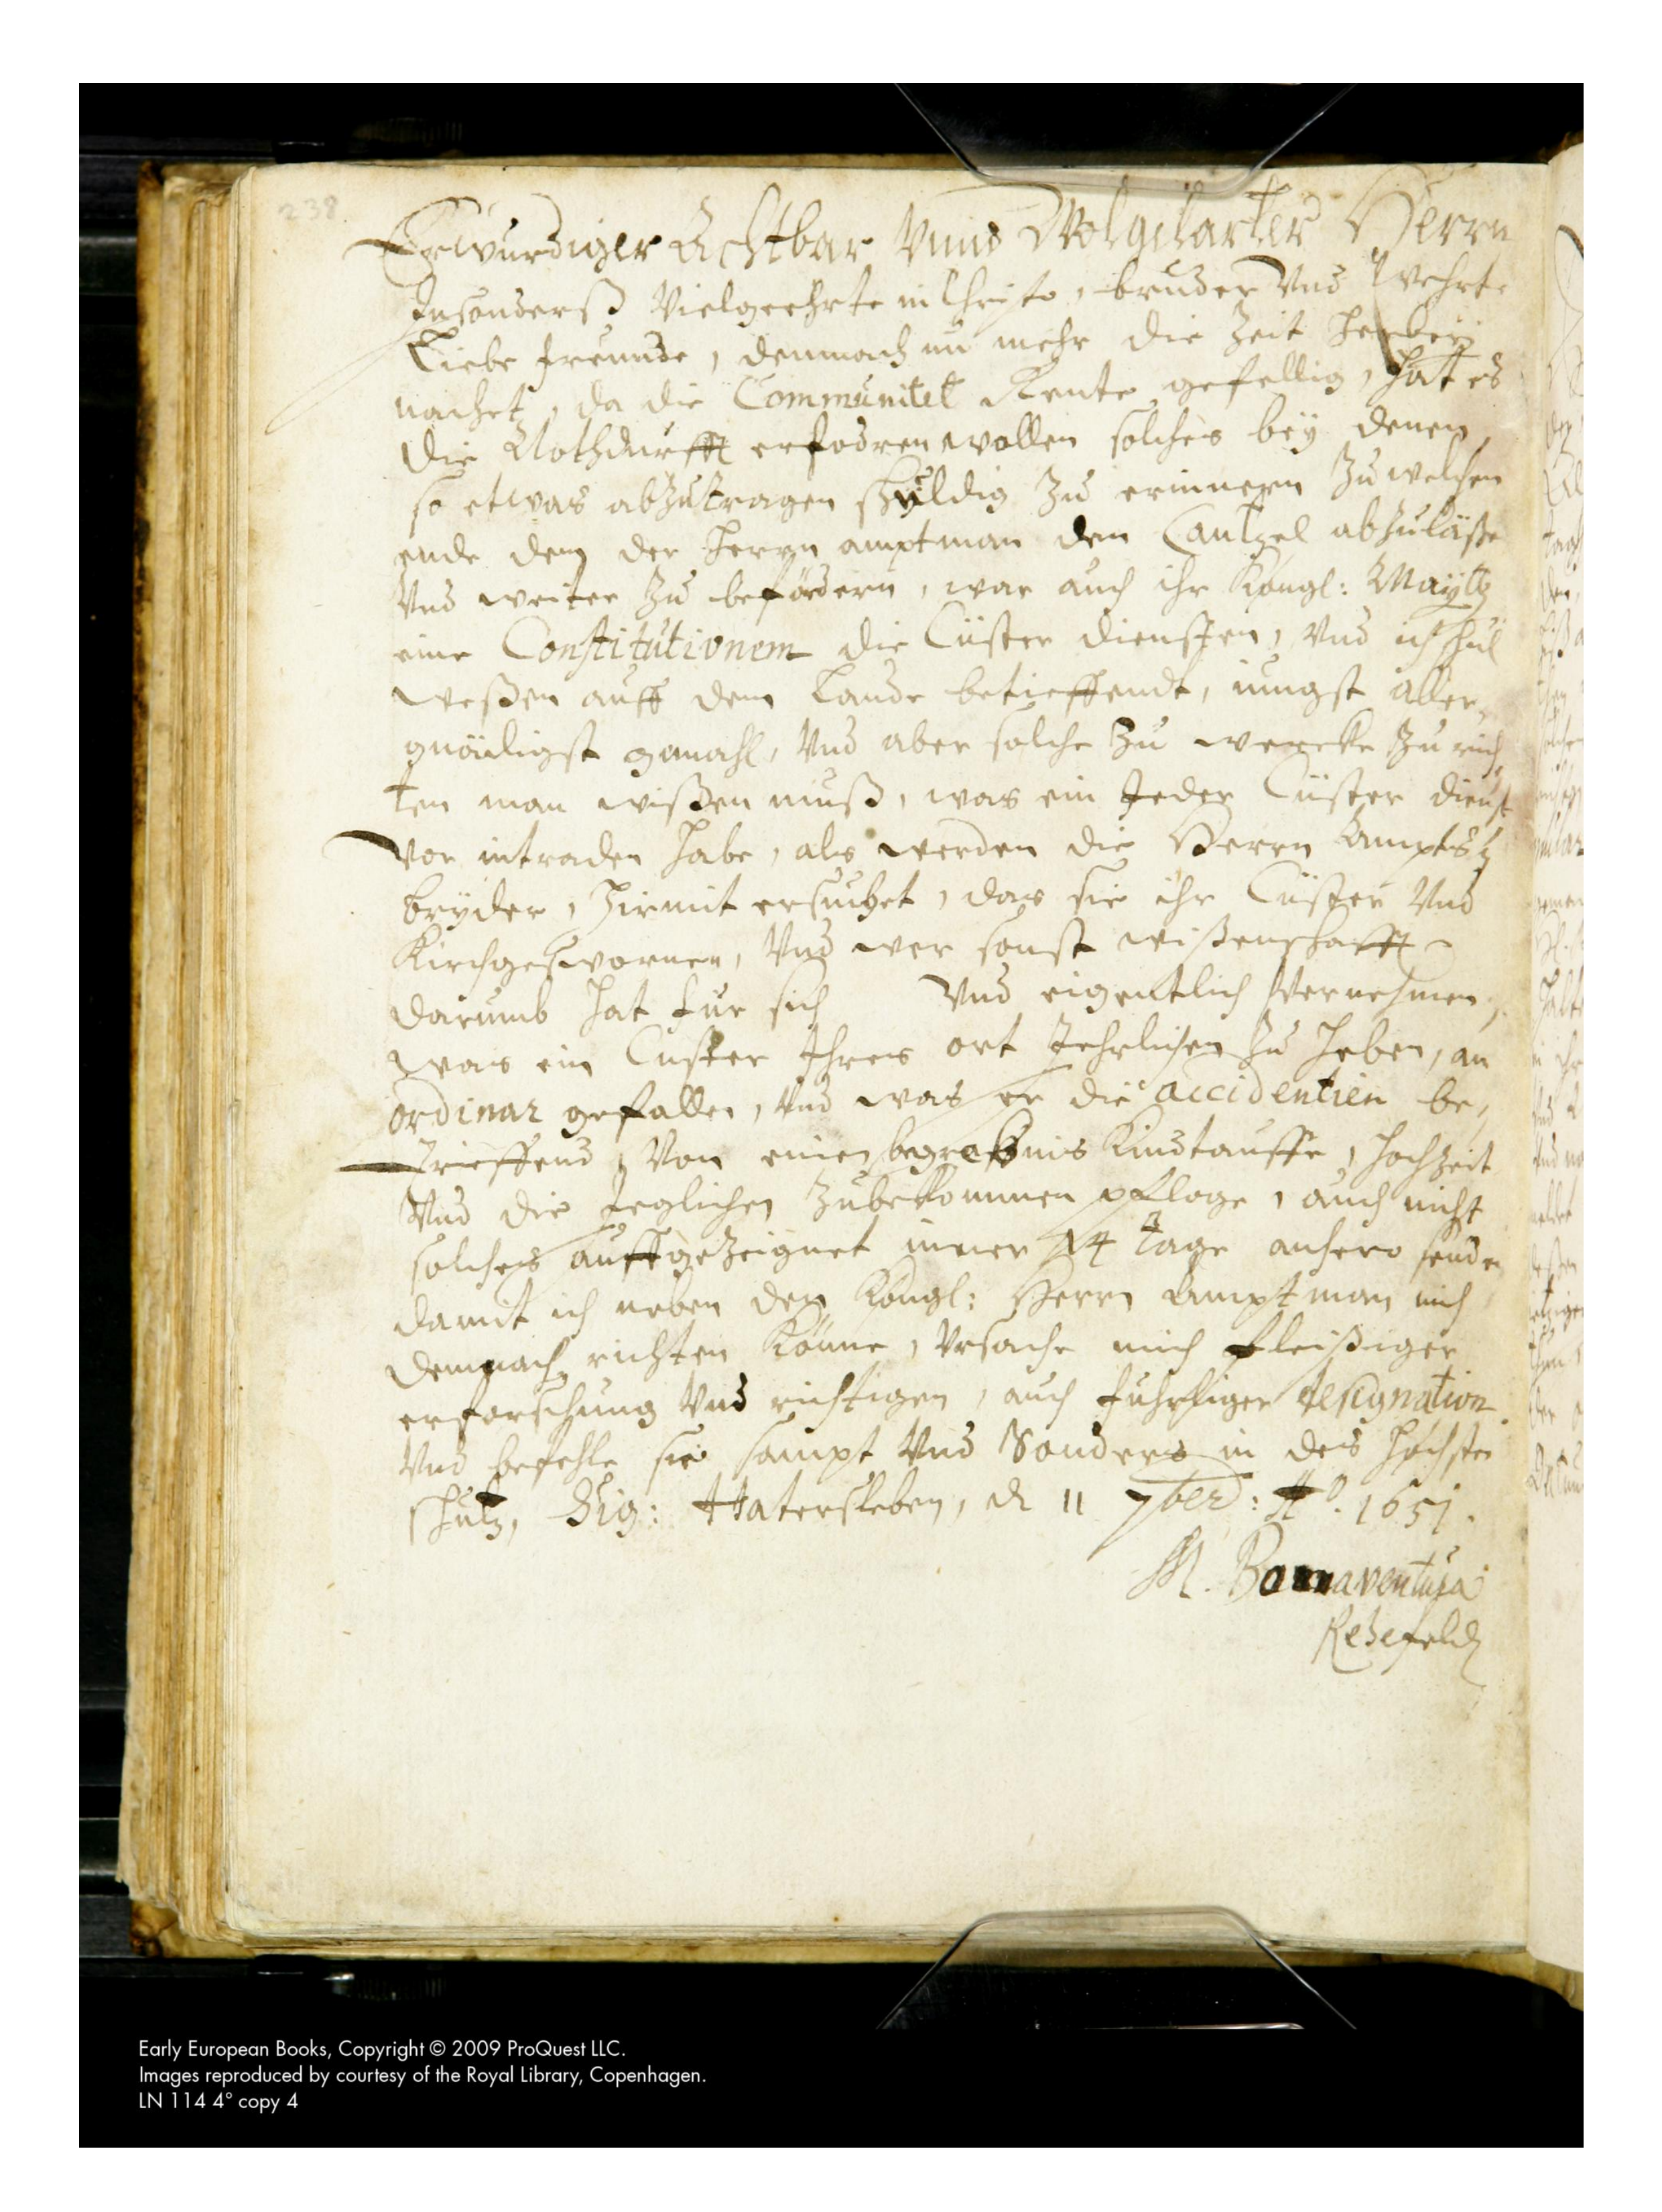 238
Erwürdiger Achtbar Unnd Wolgelarter Herrn
Insonderß Vielgeehrte in Christo, bruder Und Wehrte
Liebe freunde, demnach nu mehr die Zeit herbey
nachet, da die Communitet Rente gefellig, hat es
die Nothdurfft erfodren wollen solches bey denen
so etwas abzutragen schüldig zu erinnern Zu welchen
ende dem der Herrn amptman dem Cantzel abzuläße
Und weiter zu befördern, war auch ihr Köngl: Maÿtt
eine Constitutionem die Cüster diensten, Und ich schul
weßen auff dem Lande betreffendt, jungst aller,
gnädigst gmacht, Und aber solche zu wercke zu rich,
ten man wißen muß, was ein Jeder Cüster dienst
vor intraden habe, als werden die Herrn Ampts
bryder, hirmit ersuchet, das sie ihr Cüster Und
Kirchgeschwornen, Und wer sonst wißenschafft
darumb hat fur sich Und eigentlich Vernehmen,
was ein Custer Ihres ort Jehrlichen zu heben, an
ordinar gefallen, Und was er die accidentien be,
trieffend, Von einen begrebnis Kindtauffe, hochzeit
Und die Jeglichen zubekommen pfloge, auch nicht
solches auffgezeignet inner 14 tage anhero senden
damit ich neben den Köngl: Herrn Amptman mich
demnach richten Könne, Ursache mich fleißiger
erforschung Und richtigen, auch designation
Und befehle sie sampt Und Sonders in des höchsten
schutz, Sig: Hatersleben, d 11 7ber: Ao. 1651.
M. Bonaventura
Rehefeld
Early European Books, Copyright © 2009 ProQuest LLC.
Images reproduced by courtesy of the Royal Library, Copenhagen.
LN 114 4° copy 4